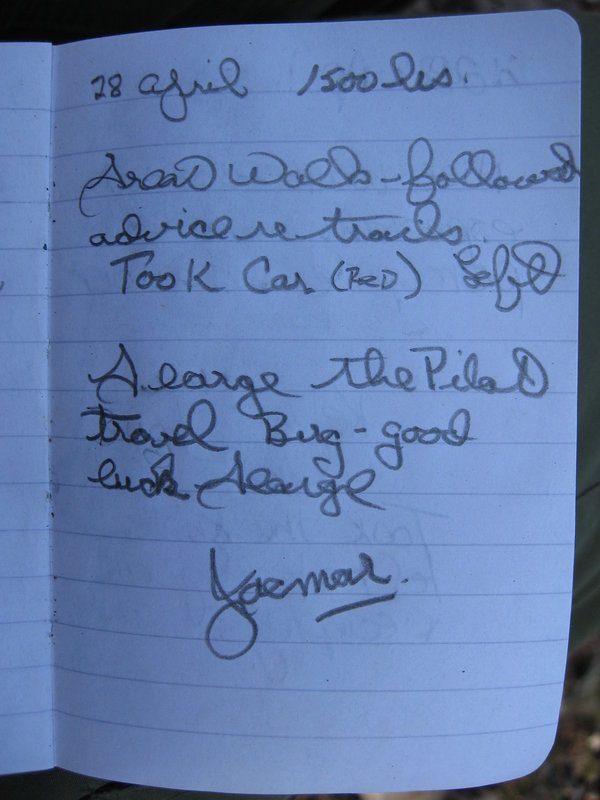 28 April 1500 hrs.
Great Walk - followed
advice re tracks.
Took Car (Red) Left
A large the Pilot
travel Bug - good
luck A large
Yaemar.